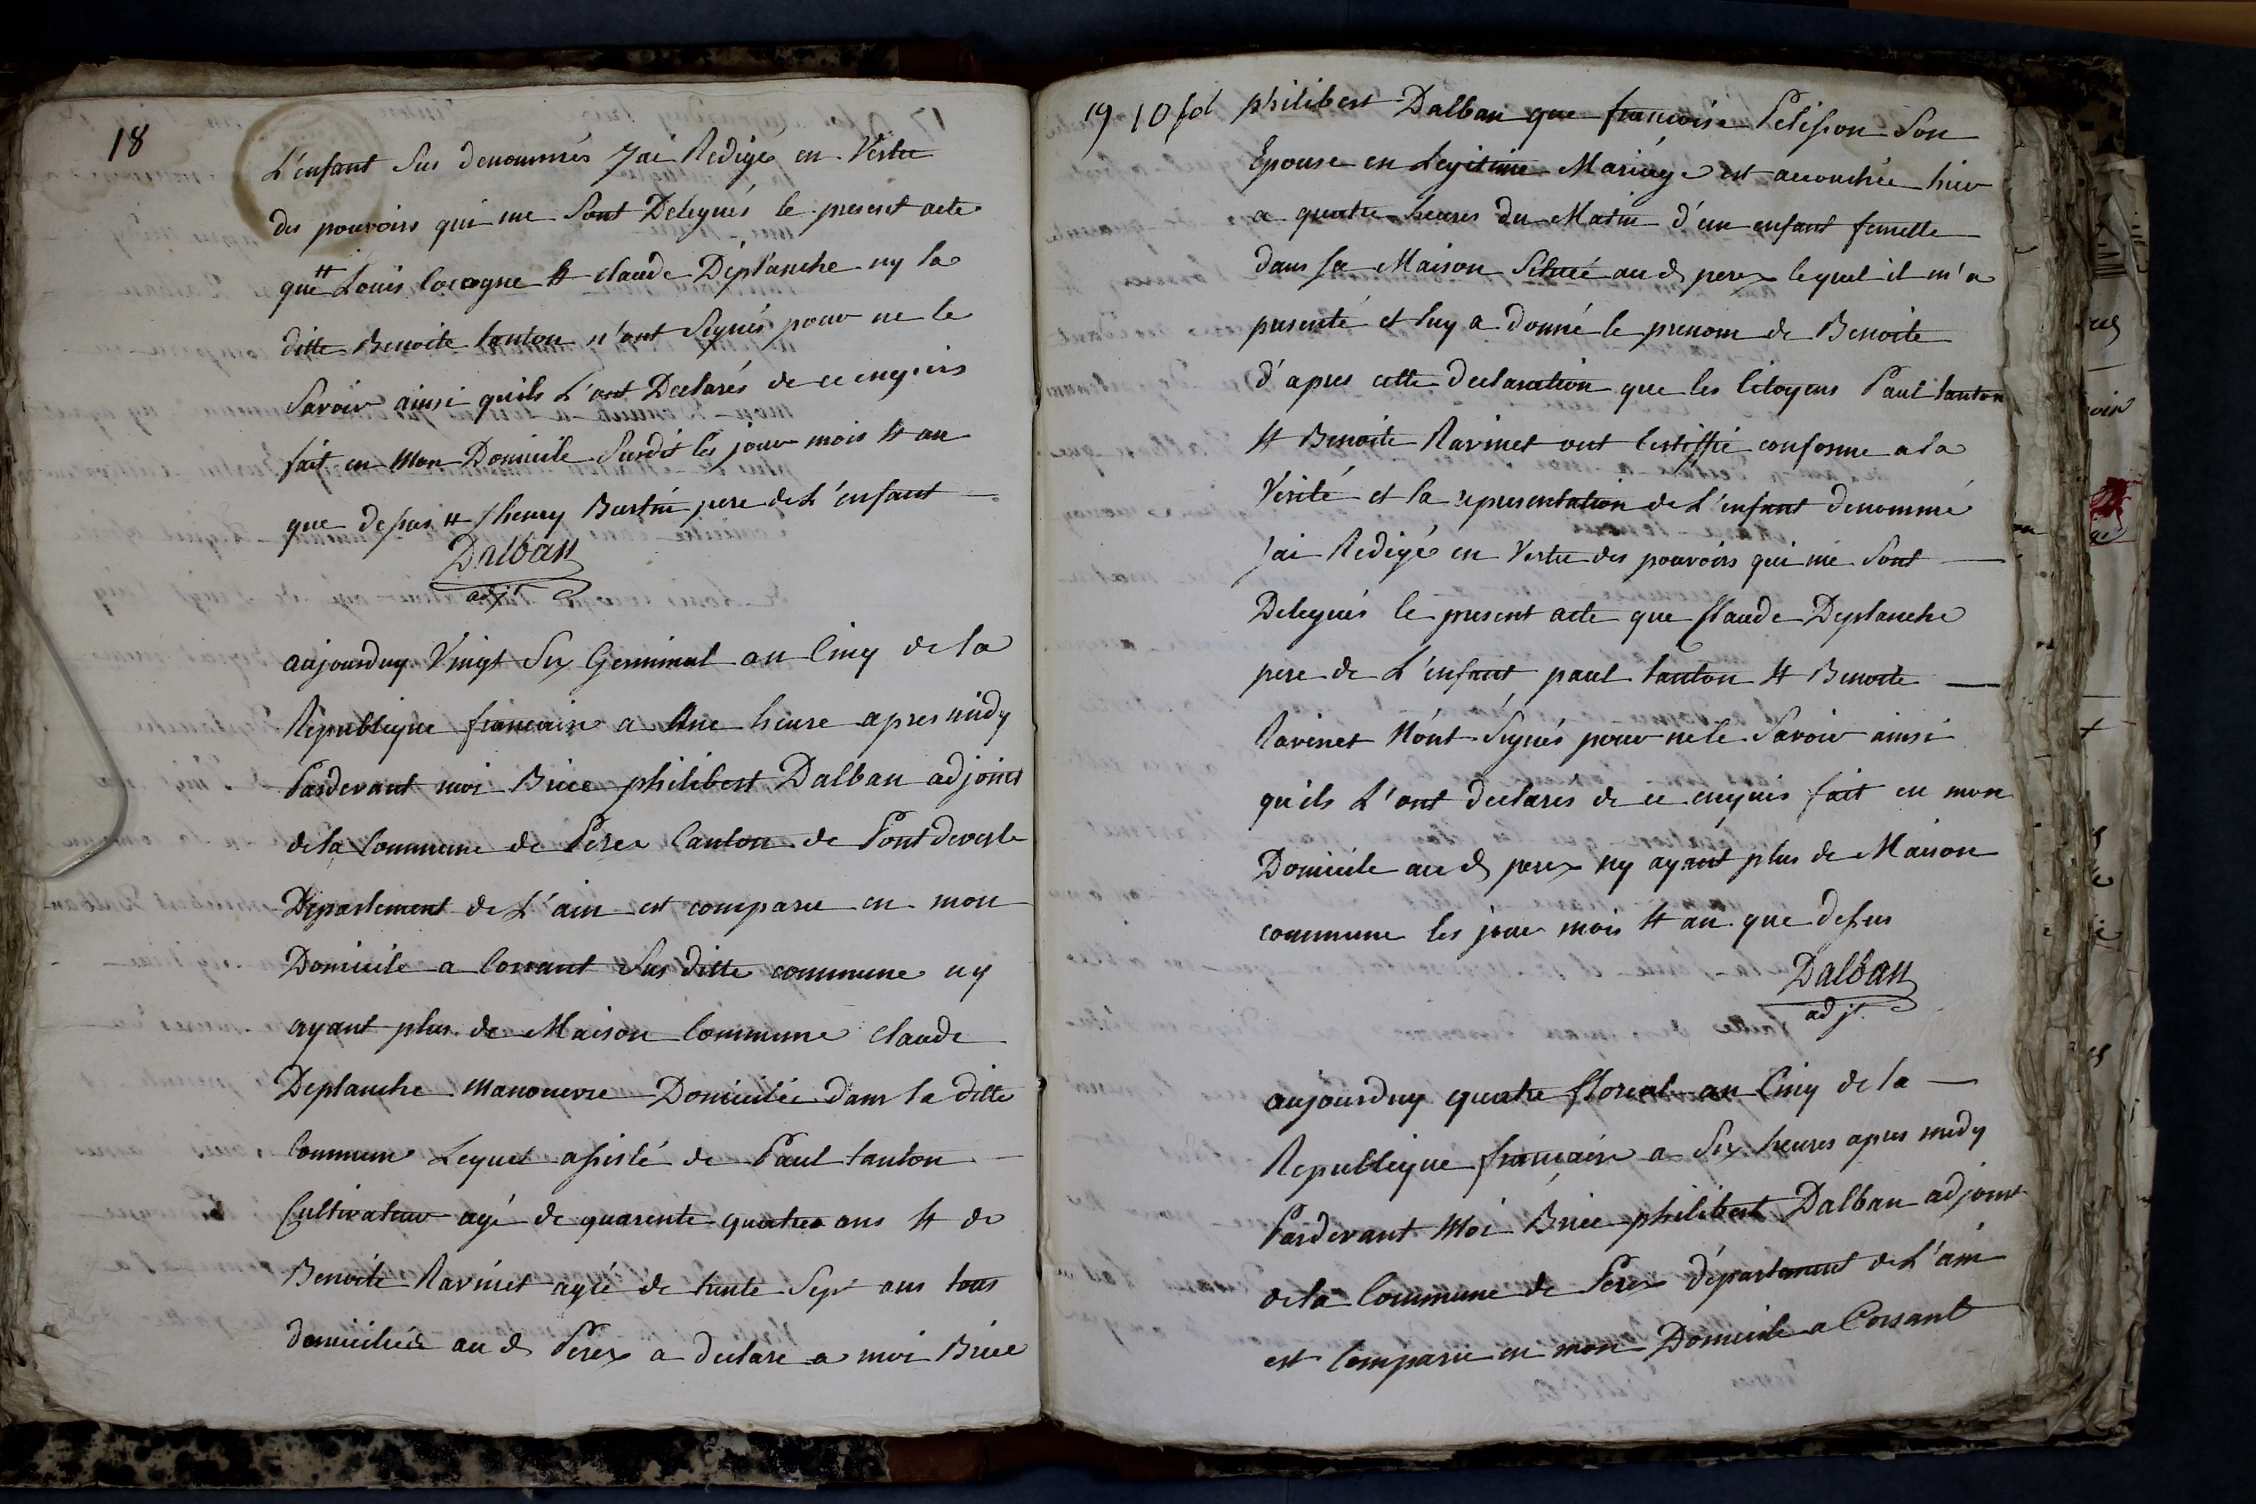 18
L'enfant sus denommés J'ai Redigé en Vertu
des pouvoirs qui me sont Delegués le present acte
que Louis Cocogne et claude Deplanche ny la
ditte Benoite tanton n'ont Signés pour ne le
Savoir ainsi quils L'ont Declarés de ce enquis
fait en Mon Domicile Susdit les jour mois et an
que dessus henry Burtin pere de L'enfant
Dalban
adjt
aujourduy Vingt Six Germinal an Cinq de la
Republique francaise a Une heure apres midy
Pardevant moi Brice philibert Dalban adjoint
de la Commune de Perex Canton de Pontdevesle
Departement de L'ain est comparu en mon
Domicile a Corsant Sus ditte commune ny
ayant plus de Maison Commune claude
Deplanche manouvre Domicilié dans la ditte
Commune Lequel assisté de Paul tanton
Cultivateur agé de quarente quatre ans et de
Benoite Ravinet agée de trente Sept ans tous
domiciliés au d Perex a declare a moi Brice
19 10 fd
philibert Dalban que francoise Pelisson Son
Epouse en Legitime Mariage est accouchée hier
a quatre heures du Matin d'un enfant femelle
dans sa Maison Situé au d perex lequel il m'a
presenté et luy a donné le prenom de Benoite
d'apres cette declaration que les Citoyens Paul tanton
et Benoite Ravinet ont Certiffié conforme a la
Verité et la representation de L'enfant denommé
J'ai Redigé en Vertu des pouvoirs qui me Sont
Delegués le present acte que Claude Deplanche
pere de L'enfant paul tanton et Benoite
Ravinet N'ont Signés pour ne le Savoir ainsi
qu'ils L'ont declares de ce enquis fait en mon
Domicile au d perex ny ayant plus de Maison
commune les jour mois et an que dessus
Dalban
adjt.
aujourduy quatre floreal an Cinq de la
Republique francaise a Six heures apres midy
Pardevant Moi Brice philibert Dalban adjoint
de la Commune de Perex département de L'ain
est Comparu en mon Domicile a Corsant